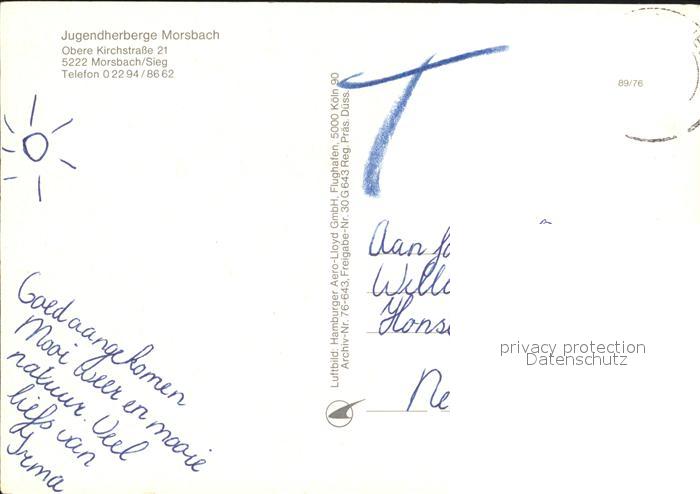 Jugendherberge Morsbach
Obere Kirchstraße 21
5222 Morsbach/Sieg
Telefon 0 22 94 / 86 62
Goed aangekomen
Mooi weer en mooie
natuur. Veel
liefs van
Irma
Luftbild: Hamburger Aero-Lloyd GmbH, Flughafen, 5000 Köln 90
Archiv-Nr. 76-643, Freigabe-Nr. 30 G 643 Reg. Präs. Düss.
89/76
Aan
privacy protection
Datenschutz